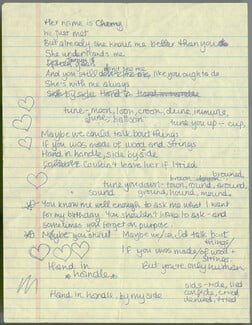 Her name is Cherry
We just met
But already she knows me better than you do
She understands me
And you still don't see me like you ought to do
She's with me always
Side by side Hand to Hand in handle
tune - moon, loon, croon, immune,
June, balloon
tune you up - cup
Maybe we could talk bout things
If you was made of wood and strings
Hand in handle, side by side
Couldn't leave her if I tried
browned
tune you down - town, round, around
sound around, hound, mound
You know me well enough to ask me what I want
for my birthday. You shouldn't have to ask - and
sometimes you forget on purpose
Maybe you should Maybe we could talk but
strings/
If you was made/of wood +
strings/
Hand in But you're only human
handle
side-ride, lied
Hand in handle, by my side
denied, tried